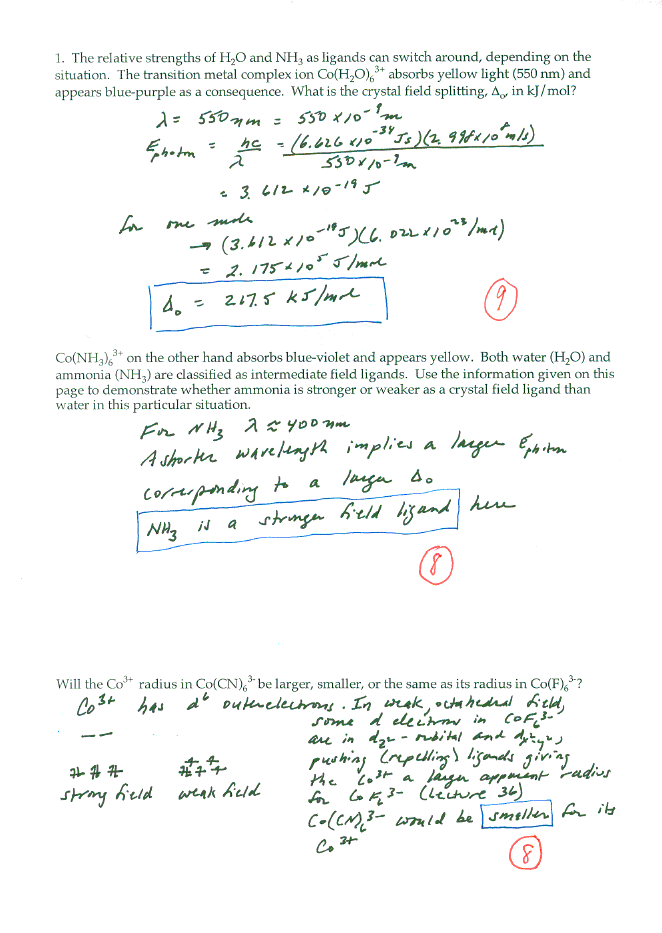 1. The relative strengths of H₂O and NH₃ as ligands can switch around, depending on the
situation. The transition metal complex ion Co(H₂O)₆³⁺ absorbs yellow light (550 nm) and
appears blue-purple as a consequence. What is the crystal field splitting, Δₒ, in kJ/mol?
λ = 550 nm = 550 x10⁻⁹ m
E photon = hc/λ = (6.626 x10⁻³⁴ Js)(2.998x10⁸ m/s) / 550 x10⁻⁹ m
= 3.612 x10⁻¹⁹ J
for one mole
→ (3.612 x10⁻¹⁹ J)(6.022 x10²³/mol)
= 2.175 x10⁵ J/mol
Δₒ = 217.5 kJ/mol
9
Co(NH₃)₆³⁺ on the other hand absorbs blue-violet and appears yellow. Both water (H₂O) and
ammonia (NH₃) are classified as intermediate field ligands. Use the information given on this
page to demonstrate whether ammonia is stronger or weaker as a crystal field ligand than
water in this particular situation.
For NH₃ λ ≈ 400 nm
A shorter wavelength implies a larger E photon
corresponding to a larger Δₒ
NH₃ is a stronger field ligand here
8
Will the Co³⁺ radius in Co(CN)₆³⁻ be larger, smaller, or the same as its radius in Co(F)₆³⁻?
Co³⁺ has d⁶ outer electrons. In weak, octahedral field,
some d electrons in CoF₆³⁻
are in dz² - orbital and dx²-y²,
pushing (repelling) ligands giving
the Co³⁺ a larger apparent radius
strong field weak field for CoF₆³⁻ (Lecture 36)
Co(CN)₆³⁻ would be smaller for its
Co³⁺
8